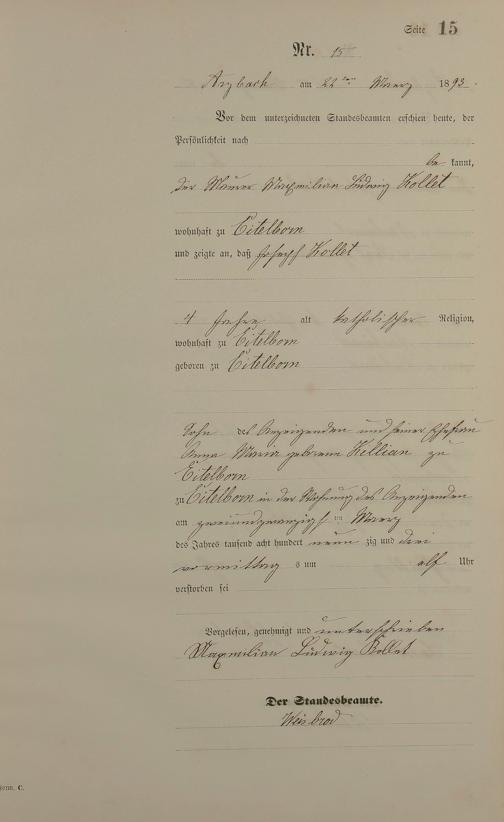 Seite 15
Nr. 15
Arzbach am 22ten Maerz 1893.
Vor dem unterzeichneten Standesbeamten erschien heute, der
Persönlichkeit nach
be kannt,
der Maurer Maxmilian Ludwig Kollet
wohnhaft zu Eitelborn
und zeigte an, daß Joseph Kollet
4 Jahre alt katholischer Religion,
wohnhaft zu Eitelborn
geboren zu Eitelborn
Sohn des Anzeigenden und seiner Ehefrau
Anna Maria geborene Killian zu
Eitelborn
zu Eitelborn in der Wohnung des Anzeigenden
am zweiundzwanzigsten Maerz
des Jahres tausend acht hundert neun zig und drei
vormittag s um elf Uhr
verstorben sei
Vorgelesen, genehmigt und unterschrieben
Maxmilian Ludwig Kollet
Der Standesbeamte.
Weisbrod
Form. C.